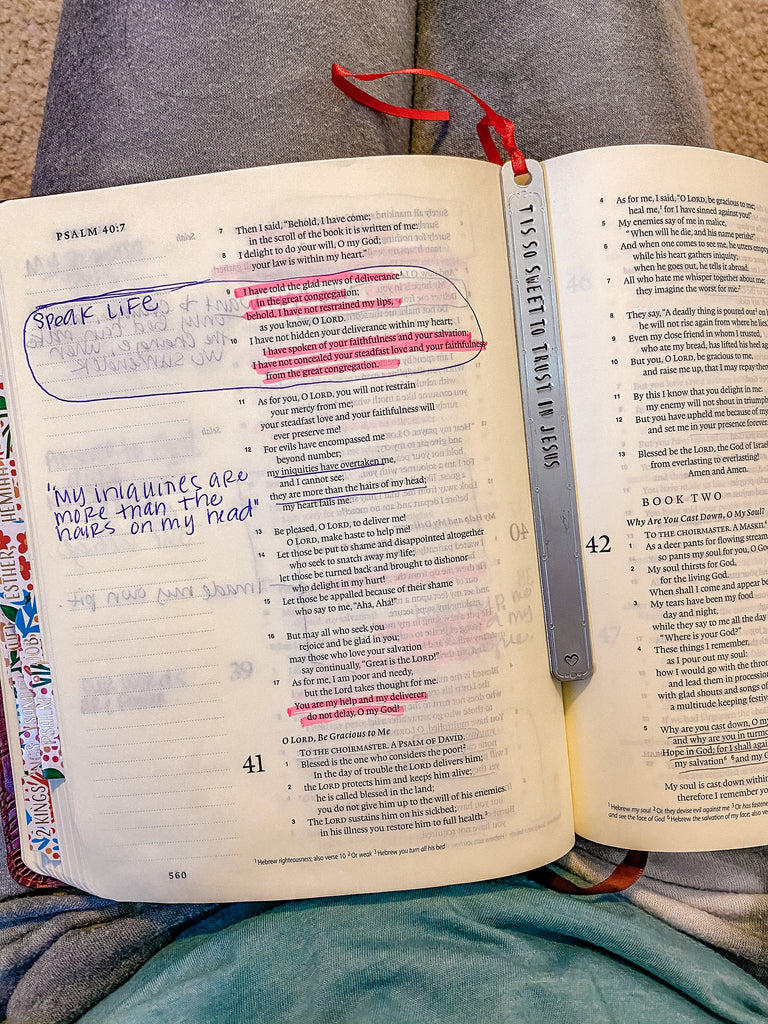 PSALM 40:7
7 Then I said, "Behold, I have come;
in the scroll of the book it is written of me:
8 I delight to do your will, O my God;
your law is within my heart."
speak life
9 I have told the glad news of deliverance¹
in the great congregation;
behold, I have not restrained my lips,
as you know, O LORD.
10 I have not hidden your deliverance within my heart;
I have spoken of your faithfulness and your salvation;
I have not concealed your steadfast love and your faithfulness
from the great congregation.
11 As for you, O LORD, you will not restrain
your mercy from me;
your steadfast love and your faithfulness will
ever preserve me!
12 For evils have encompassed me
beyond number;
my iniquities have overtaken me,
and I cannot see;
they are more than the hairs of my head;
my heart fails me.
"My iniquines are
more than the
hairs on my head"
13 Be pleased, O LORD, to deliver me!
O LORD, make haste to help me!
14 Let those be put to shame and disappointed altogether
who seek to snatch away my life;
let those be turned back and brought to dishonor
who delight in my hurt!
15 Let those be appalled because of their shame
who say to me, "Aha, Aha!"
16 But may all who seek you
rejoice and be glad in you;
may those who love your salvation
say continually, "Great is the LORD!"
17 As for me, I am poor and needy,
but the Lord takes thought for me.
You are my help and my deliverer;
do not delay, O my God!
O LORD, Be Gracious to Me
41 TO THE CHOIRMASTER. A PSALM OF DAVID.
1 Blessed is the one who considers the poor!²
In the day of trouble the LORD delivers him;
2 the LORD protects him and keeps him alive;
he is called blessed in the land;
you do not give him up to the will of his enemies.
3 The LORD sustains him on his sickbed;
in his illness you restore him to full health.³
¹ Hebrew righteousness; also verse 10 ² Or weak ³ Hebrew you turn all his bed
560
ESTHER
JOB
PSALM
2 KINGS
TIS SO SWEET TO TRUST IN JESUS
4 As for me, I said, "O LORD, be gracious to me;
heal me,¹ for I have sinned against you!"
5 My enemies say of me in malice,
"When will he die, and his name perish?"
6 And when one comes to see me, he utters empty
while his heart gathers iniquity;
when he goes out, he tells it abroad.
7 All who hate me whisper together about me;
they imagine the worst for me.²
8 They say, "A deadly thing is poured out³ on
he will not rise again from where he lies."
9 Even my close friend in whom I trusted,
who ate my bread, has lifted his heel
10 But you, O LORD, be gracious to me,
and raise me up, that I may repay them
11 By this I know that you delight in me:
my enemy will not shout in triumph
12 But you have upheld me because of my
and set me in your presence forever.
13 Blessed be the LORD, the God of Israel,
from everlasting to everlasting!
Amen and Amen.
BOOK TWO
Why Are You Cast Down, O My Soul?
42 TO THE CHOIRMASTER. A MASKIL⁴
1 As a deer pants for flowing streams,
so pants my soul for you, O God.
2 My soul thirsts for God,
for the living God.
When shall I come and appear
3 My tears have been my food
day and night,
while they say to me all the day
"Where is your God?"
4 These things I remember,
as I pour out my soul:
how I would go with the throng
and lead them in procession
with glad shouts and songs of
a multitude keeping festival.
5 Why are you cast down, O my
and why are you in turmoil
Hope in God; for I shall again
my salvation⁶ ⁶ and my
My soul is cast down within
therefore I remember you
¹ Hebrew my soul ² Or they devise evil against me ³ Or has fastened
and see the face of God ⁶ Hebrew the salvation of my face; also